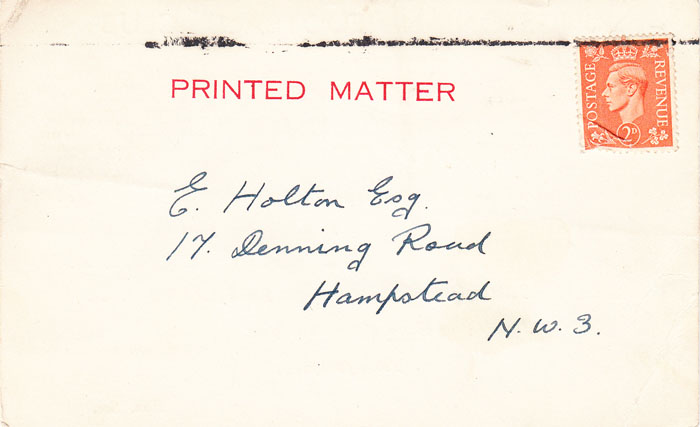 PRINTED MATTER
POSTAGE REVENUE
2D
E. Holton Esq.
17. Denning Road
Hampstead
N.W.3.